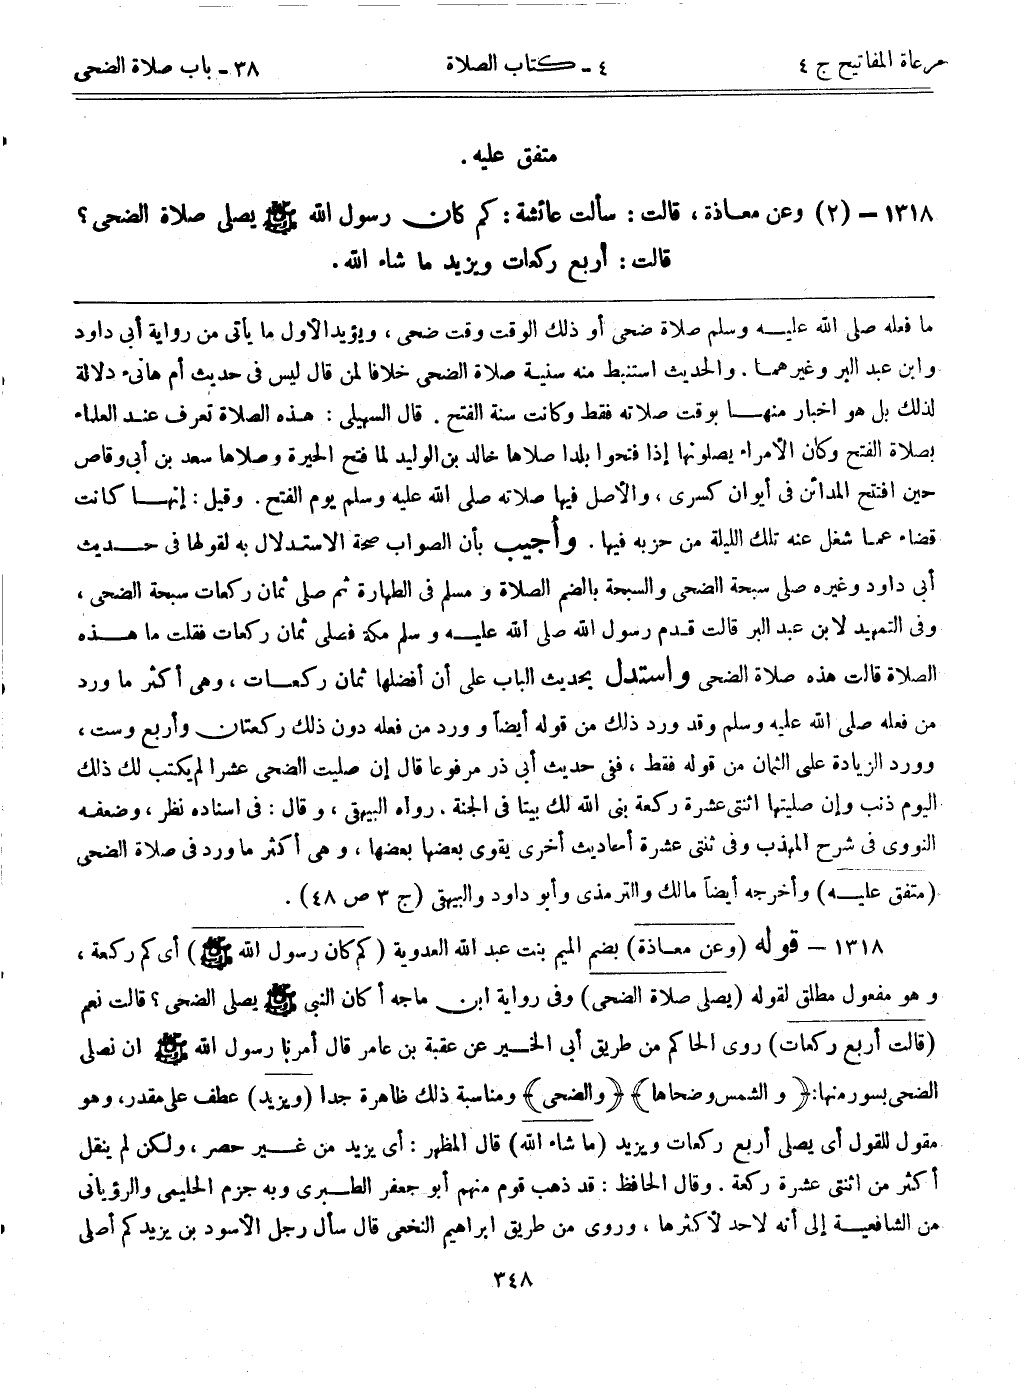 مرعاة المفاتيح ج ٤
٤ - كتاب الصلاة
٣٨ - باب صلاة الضحى
متفق عليه .
١٣١٨ – (٢) وعن معاذة ، قالت : سألت عائشة : كم كان رسول الله ﷺ يصلى صلاة الضحى ؟
قالت : أربع ركعات ويزيد ما شاء الله .
ما فعله صلى الله عليه وسلم صلاة ضحى أو ذلك الوقت وقت ضحى ، ويؤيد الأول ما يأتى من رواية أبى داود
وابن عبد البر وغيرهما . والحديث استنبط منه سنية صلاة الضحى خلافا لمن قال ليس فى حديث أم هانىء دلالة
لذلك بل هو اخبار منها بوقت صلاته فقط وكانت سنة الفتح . قال السهيلى : هذه الصلاة تعرف عند العلماء
بصلاة الفتح وكان الأمراء يصلونها إذا فتحوا بلدا صلاها خالد بن الوليد لما فتح الحيرة وصلاها سعد بن أبى وقاص
حين افتتح المدائن فى أيوان كسرى ، والأصل فيها صلاته صلى الله عليه وسلم يوم الفتح . وقيل : إنها كانت
قضاء عما شغل عنه تلك الليلة من حزبه فيها . وأجيب بأن الصواب صحة الاستدلال به لقولها فى حديث
أبى داود وغيره صلى سبحة الضحى والسبحة بالضم الصلاة و مسلم فى الطهارة ثم صلى ثمان ركعات سبحة الضحى ،
وفى التمهيد لابن عبد البر قالت قدم رسول الله صلى الله عليه و سلم مكة فصلى ثمان ركعات فقلت ما هذه
الصلاة قالت هذه صلاة الضحى واستدل بحديث الباب على أن أفضلها ثمان ركعات ، وهى أكثر ما ورد
من فعله صلى الله عليه وسلم وقد ورد ذلك من قوله أيضاً و ورد من فعله دون ذلك ركعتان وأربع وست ،
وورد الزيادة على الثمان من قوله فقط ، ففى حديث أبى ذر مرفوعا قال إن صليت الضحى عشرا لم يكتب لك ذلك
اليوم ذنب وإن صليتها اثنتى عشرة ركعة بنى الله لك بيتا فى الجنة . رواه البيهقى ، و قال : فى اسناده نظر ، وضعفه
النووى فى شرح المهذب وفى ثنتى عشرة أحاديث أخرى يقوى بعضها بعضها ، و هى أكثر ما ورد فى صلاة الضحى
(متفق عليه) وأخرجه أيضاً مالك والترمذى وأبو داود والبيهقى (ج ٣ ص ٤٨) .
١٣١٨ – قوله (وعن معاذة) بضم الميم بنت عبد الله العدوية (كم كان رسول الله ﷺ) أى كم ركعة ،
و هو مفعول مطلق لقوله (يصلى صلاة الضحى) وفى رواية ابن ماجه أ كان النبى ﷺ يصلى الضحى ؟ قالت نعم
(قالت أربع ركعات) روى الحاكم من طريق أبى الخير عن عقبة بن عامر قال أمرنا رسول الله ﷺ ان نصلى
الضحى بسور منها : ﴿ و الشمس وضحاها ﴾ ﴿ والضحى ﴾ ومناسبة ذلك ظاهرة جدا (ويزيد) عطف على مقدر، وهو
مقول للقول أى يصلى أربع ركعات ويزيد (ما شاء الله) قال المظهر : أى يزيد من غير حصر ، ولكن لم ينقل
أكثر من اثنتى عشرة ركعة . وقال الحافظ : قد ذهب قوم منهم أبو جعفر الطبرى وبه جزم الحليمى والرؤيانى
من الشافعية إلى أنه لاحد لأكثرها ، وروى من طريق ابراهيم النخعى قال سأل رجل الأسود بن يزيد كم أصلى
٣٤٨